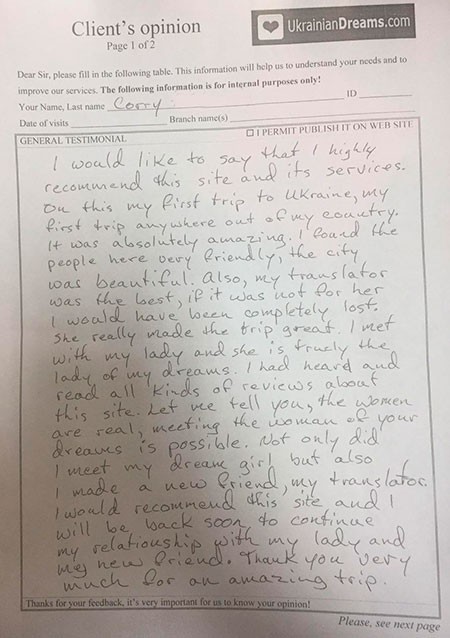 Client's opinion
Page 1 of 2
UkrainianDreams.com
Dear Sir, please fill in the following table. This information will help us to understand your needs and to
improve our services. The following information is for internal purposes only!
Your Name, Last name Corry ID
Date of visits Branch name(s)
GENERAL TESTIMONIAL I PERMIT PUBLISH IT ON WEB SITE
I would like to say that I highly
recommend this site and its services.
On this my first trip to Ukraine, my
first trip anywhere out of my country.
It was absolutely amazing. I found the
people here very friendly, the city
was beautiful. Also, my translator
was the best, if it was not for her
I would have been completely lost.
She really made the trip great. I met
with my lady and she is truely the
lady of my dreams. I had heard and
read all kinds of reviews about
this site. Let me tell you, the women
are real, meeting the woman of your
dreams is possible. Not only did
I meet my dream girl but also
I made a new friend, my translator.
I would recommend this site and I
will be back soon, to continue
my relationship with my lady and
my new friend. Thank you very
much for an amazing trip.
Thanks for your feedback, it's very important for us to know your opinion!
Please, see next page